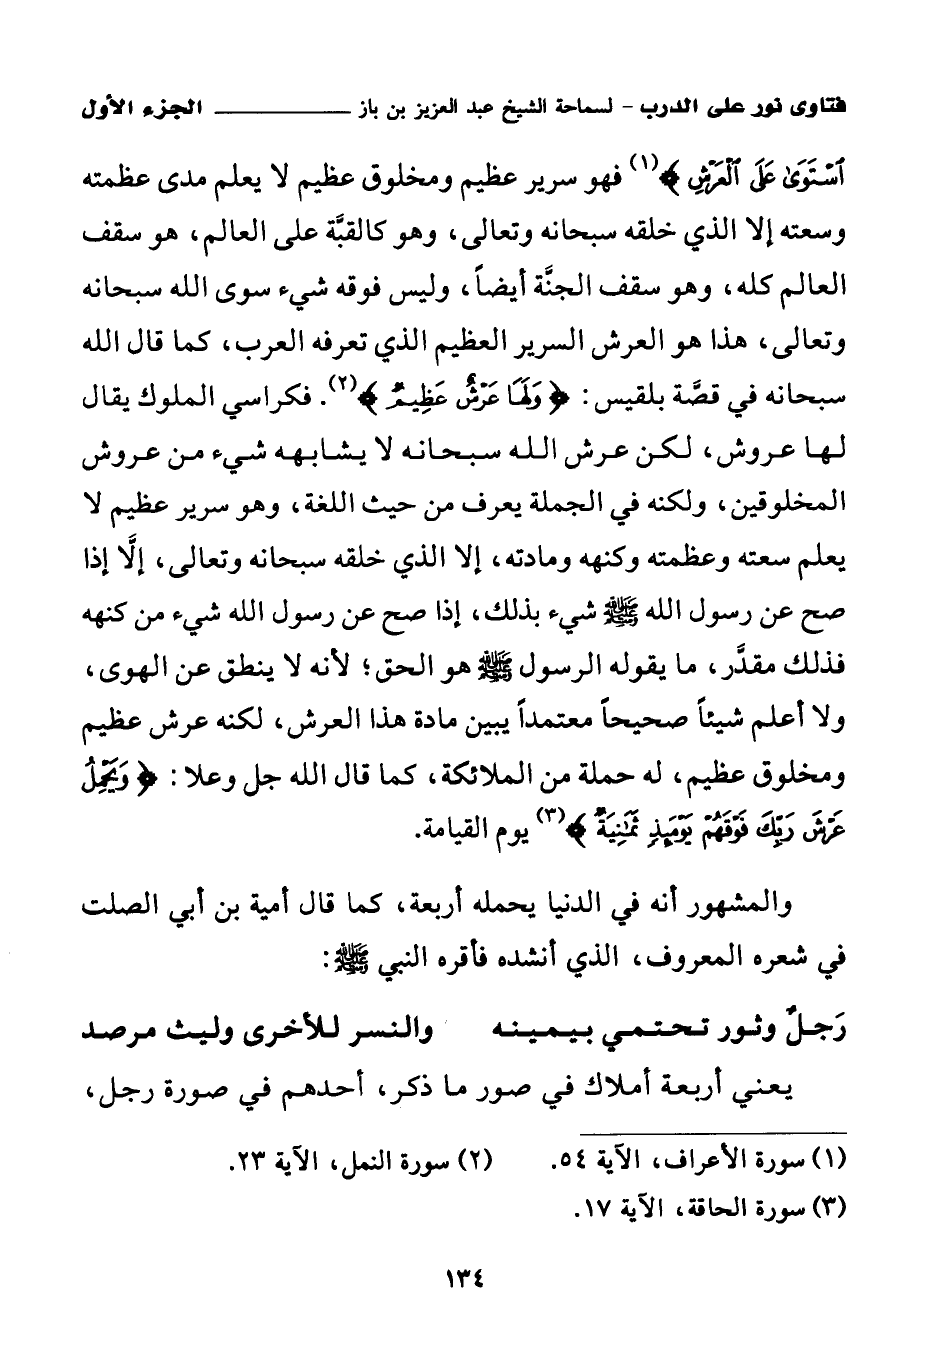 فتاوى نور على الدرب - لسماحة الشيخ عبد العزيز بن باز ــــــــــــــ الجزء الأول
ٱسْتَوَىٰ عَلَى ٱلْعَرْشِ ﴾(١) فهو سرير عظيم ومخلوق عظيم لا يعلم مدى عظمته
وسعته إلا الذي خلقه سبحانه وتعالى، وهو كالقبَّة على العالم، هو سقف
العالم كله، وهو سقف الجنَّة أيضاً، وليس فوقه شيء سوى الله سبحانه
وتعالى، هذا هو العرش السرير العظيم الذي تعرفه العرب، كما قال الله
سبحانه في قصَّة بلقيس: ﴿ وَلَهَا عَرْشٌ عَظِيمٌ ﴾(٢). فكراسي الملوك يقال
لها عروش، لكن عرش الله سبحانه لا يشابهه شيء من عروش
المخلوقين، ولكنه في الجملة يعرف من حيث اللغة، وهو سرير عظيم لا
يعلم سعته وعظمته وكنهه ومادته، إلا الذي خلقه سبحانه وتعالى، إلَّا إذا
صح عن رسول الله ﷺ شيء بذلك، إذا صح عن رسول الله شيء من كنهه
فذلك مقدَّر، ما يقوله الرسول ﷺ هو الحق؛ لأنه لا ينطق عن الهوى،
ولا أعلم شيئاً صحيحاً معتمداً يبين مادة هذا العرش، لكنه عرش عظيم
ومخلوق عظيم، له حملة من الملائكة، كما قال الله جل وعلا: ﴿ وَيَحْمِلُ
عَرْشَ رَبِّكَ فَوْقَهُمْ يَوْمَئِذٍ ثَمَٰنِيَةٌ ﴾(٣) يوم القيامة.
والمشهور أنه في الدنيا يحمله أربعة، كما قال أمية بن أبي الصلت
في شعره المعروف، الذي أنشده فأقره النبي ﷺ:
رَجلٌ وثور تحتمي بيمينه والنسر للأخرى وليث مرصد
يعني أربعة أملاك في صور ما ذكر، أحدهم في صورة رجل،
(١) سورة الأعراف، الآية ٥٤. (٢) سورة النمل، الآية ٢٣.
(٣) سورة الحاقة، الآية ١٧.
١٣٤